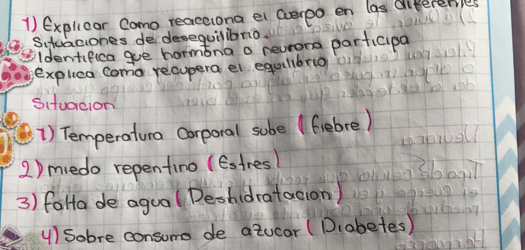 1) Explicar Como reacciona el Cuerpo en las diferentes
Situaciones de desequilibrio.
Identifica que hormona o neurona participa
Explica Como recupera el equilibrio
Situacion
1) Temperatura Corporal sube (fiebre)
2) miedo repentino (Estres)
3) falta de agua (Deshidratacion)
4) Sobre consumo de azucar (Diabetes)